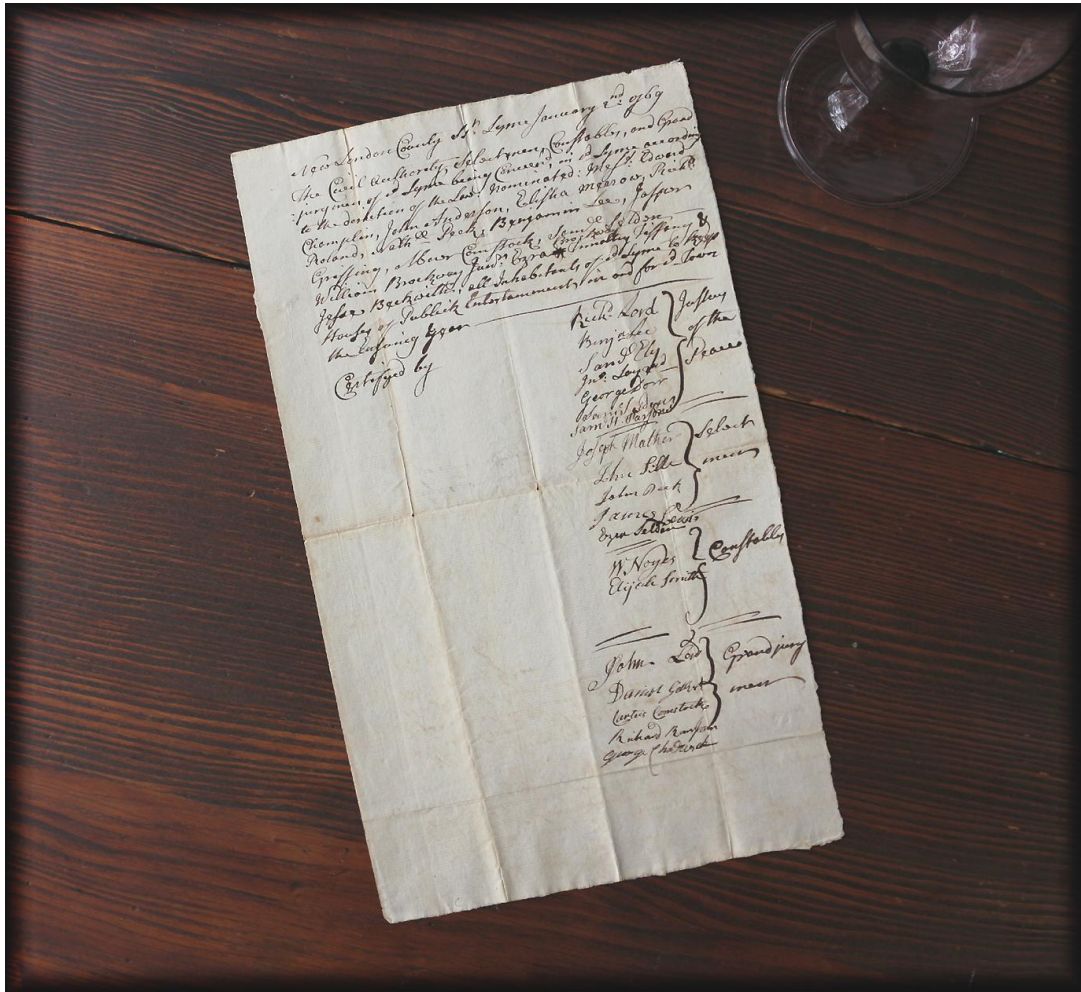 New London County Ss. Lyme January 2nd 1769
The Civil Authority, Selectmen, Constables, and Grand
jurymen of sd Lyme being Conven'd, in sd Lyme according
to the direction of the Law Nominated: Messrs. Edward
Champlin, John Anderson, Elisha Merrow, Richd.
Noland, Nathll Peck, Benjamin Lee, Jasper
Griffing, Abner Comstock, Samll Selden
William Brockway Junr. Ezra Timothy Jiffeny &
Jesse Beckwith, all Inhabitants of sd Lyme to Keep
Houses of Publick Entertainment in and for sd Town
the ensuing year
Certifyed by
Richd. Lord
Benja Lee
Saml. Ely
Jno.
George Dorr
Sam. H. Parsons
Justices
of the
Peace
Joseph Mather
John Sill
John Peck
James
Ezra Selden
Select
men
W. Noyes
Elijah Smith
Constables
John Lord
Daniel
Comstock
Richard Ransom
George Chadwick
Grand jury
men